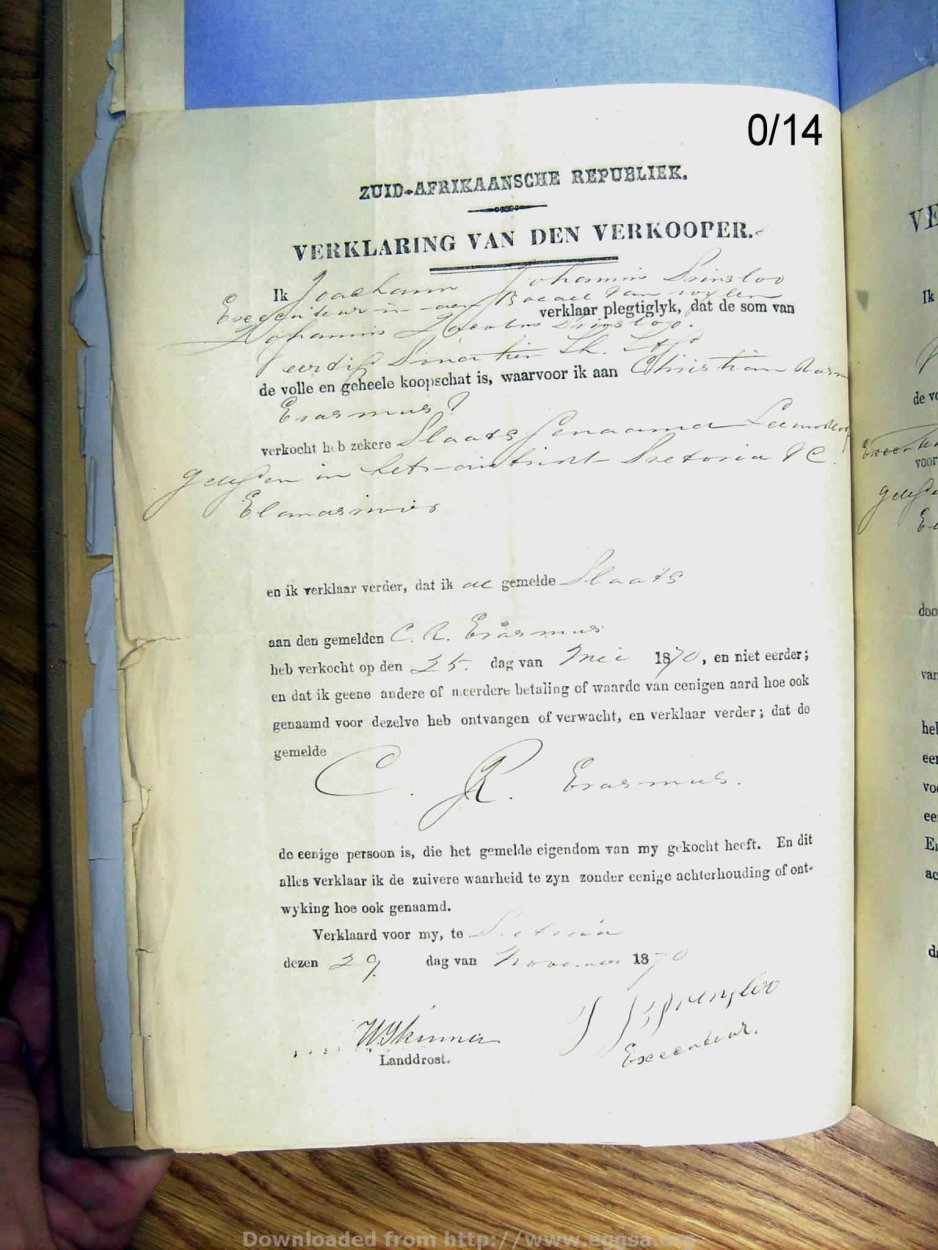 0/14
ZUID-AFRIKAANSCHE REPUBLIEK.
VERKLARING VAN DEN VERKOOPER.
Ik Joachem Johannis Prinsloo
Executeur in van wylen
verklaar plegtiglyk, dat de som van
Johannis Prinsloo.
Veertig
de volle en geheele koopschat is, waarvoor ik aan Christian
Erasmus
verkocht heb zekere Plaats Genaamd
gelegen in het Pretoria
en ik verklaar verder, dat ik de gemelde Plaats
aan den gemelden C. R. Erasmus
heb verkocht op den 25 dag van Mei 1870, en niet eerder;
en dat ik geene andere of meerdere betaling of waarde van eenigen aard hoe ook
genaamd voor dezelve heb ontvangen of verwacht, en verklaar verder; dat de
gemelde
C. R. Erasmus.
de eenige persoon is, die het gemelde eigendom van my gekocht heeft. En dit
alles verklaar ik de zuivere waarheid te zyn zonder eenige achterhouding of ont-
wyking hoe ook genaamd.
Verklaard voor my, te Pretoria
dezen 29 dag van November 1870
W Skinner
Landdrost.
J J Prinsloo
Executeur.
VE
Ik
de vo
voor
doo
van
hel
eer
voo
ee
En
ac
de
Downloaded from http://www.eggsa.org